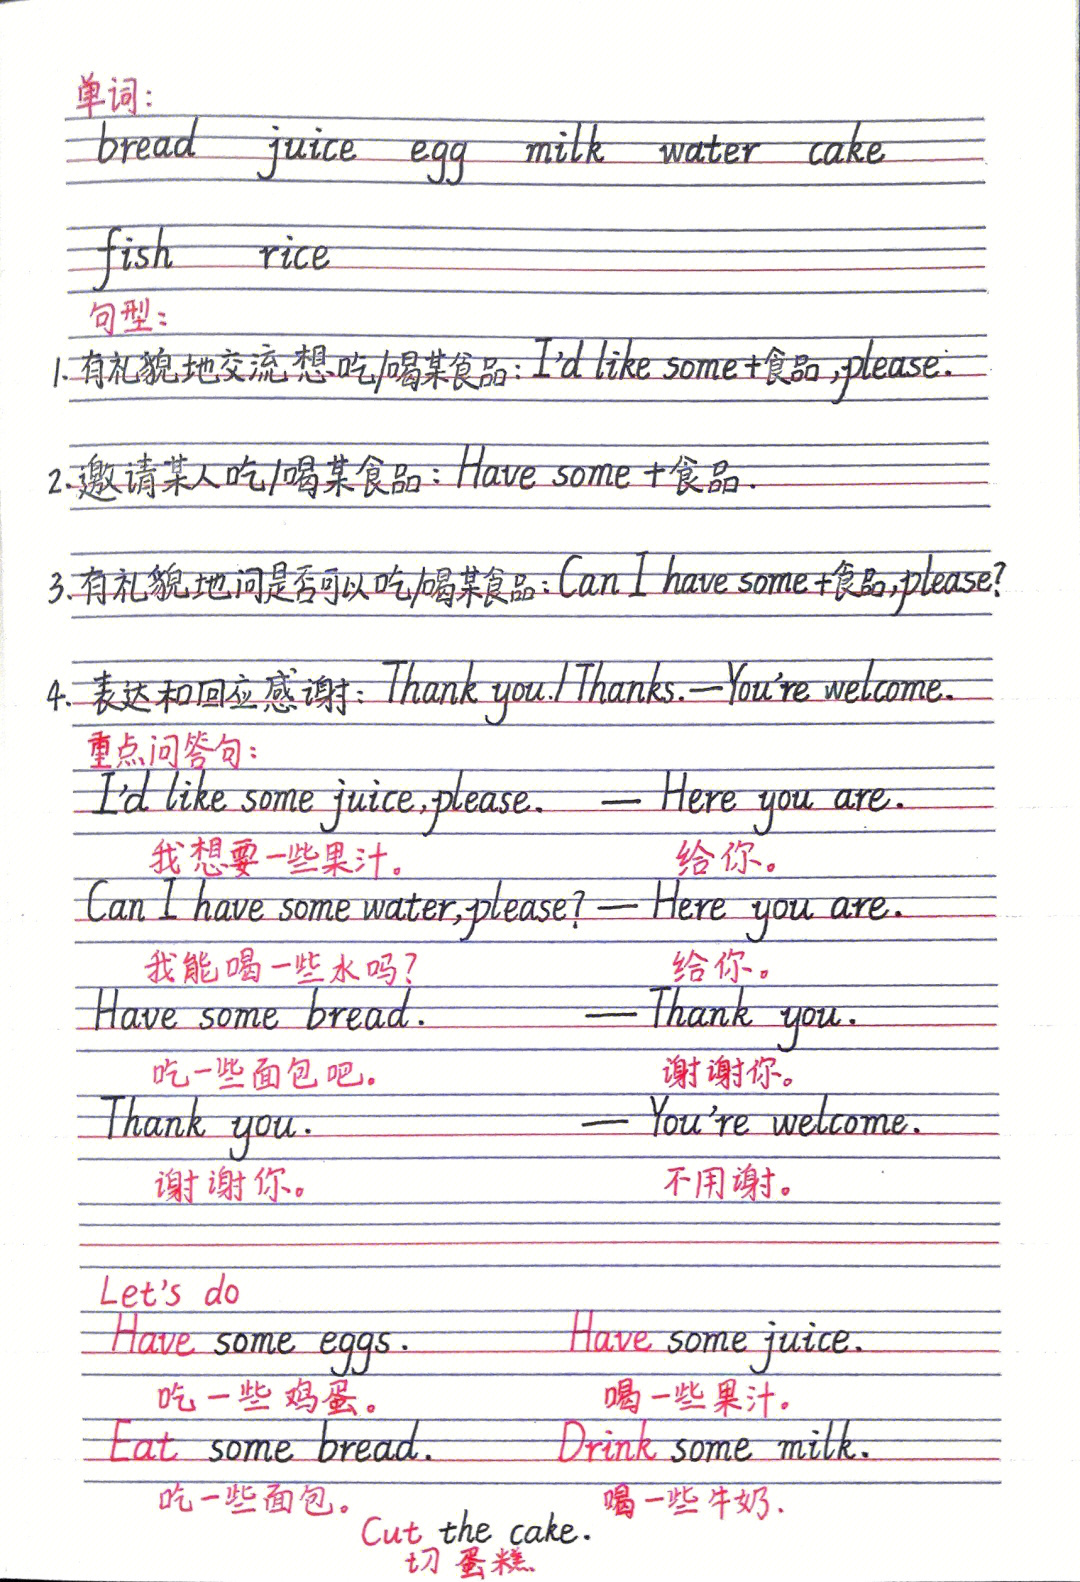 单词:
bread juice egg milk water cake
fish rice
句型:
1. 有礼貌地交流想吃/喝某食品: I'd like some+食品,please.
2. 邀请某人吃/喝某食品: Have some+食品.
3. 有礼貌地问是否可以吃/喝某食品: Can I have some+食品,please?
4. 表达和回应感谢: Thank you./Thanks.—You're welcome.
重点问答句:
I'd like some juice,please. — Here you are.
我想要一些果汁。 给你。
Can I have some water,please? — Here you are.
我能喝一些水吗? 给你。
Have some bread. — Thank you.
吃一些面包吧。 谢谢你。
Thank you. — You're welcome.
谢谢你。 不用谢。
Let's do
Have some eggs. Have some juice.
吃一些鸡蛋。 喝一些果汁。
Eat some bread. Drink some milk.
吃一些面包。 喝一些牛奶.
Cut the cake.
切蛋糕